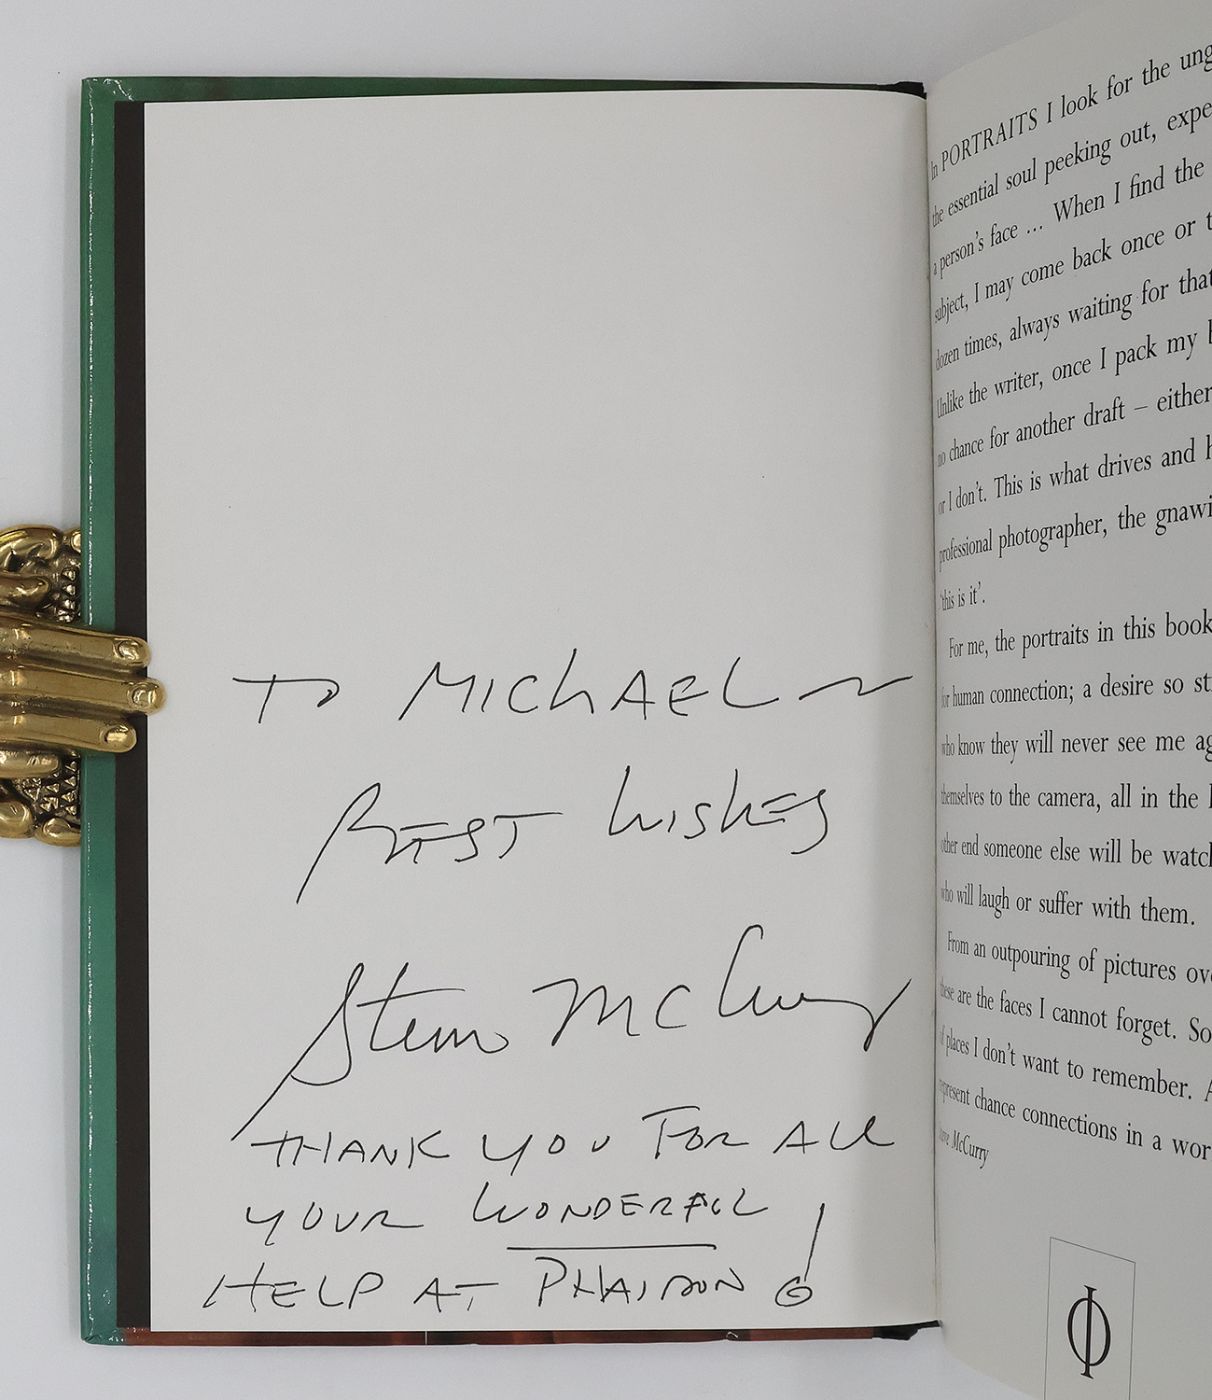 To MICHAEL
BEST WISHES
Steve McCurry
THANK YOU FOR ALL
YOUR WONDERFUL
HELP AT PHAIDON!
In PORTRAITS I look for the ung
the essential soul peeking out, expe
a person's face ... When I find the
subject, I may come back once or t
dozen times, always waiting for that
Unlike the writer, once I pack my
no chance for another draft – either
or I don't. This is what drives and h
professional photographer, the gnawi
'this is it'.
For me, the portraits in this book
for human connection; a desire so st
who know they will never see me ag
themselves to the camera, all in the
other end someone else will be watch
who will laugh or suffer with them.
From an outpouring of pictures ov
these are the faces I cannot forget. So
of places I don't want to remember. A
represent chance connections in a wor
Steve McCurry
Φ